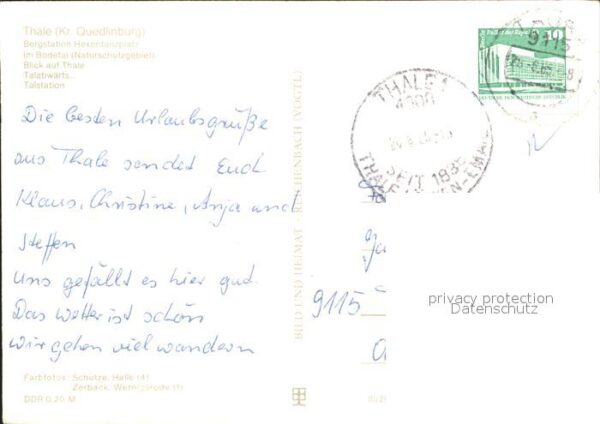 Thale (Kr. Quedlinburg)
Bergstation Hexentanzplatz
im Bodetal (Naturschutzgebiet)
Blick auf Thale
Talabwärts...
Talstation
Die besten Urlaubsgrüße
aus Thale sendet Euch
Klaus, Christine, Anja und
Steffen
Uns gefällt es hier gut.
Das Wetter ist schön
wir gehen viel wandern
Farbfotos: Schütze, Halle (4)
Zerback, Wernigerode (1)
DDR 0,20 M
BILD UND HEIMAT REICHENBACH (VOGTL)
THALE 1
4300
SEIT 1835
THALE
10
9115
9115
privacy protection
Datenschutz